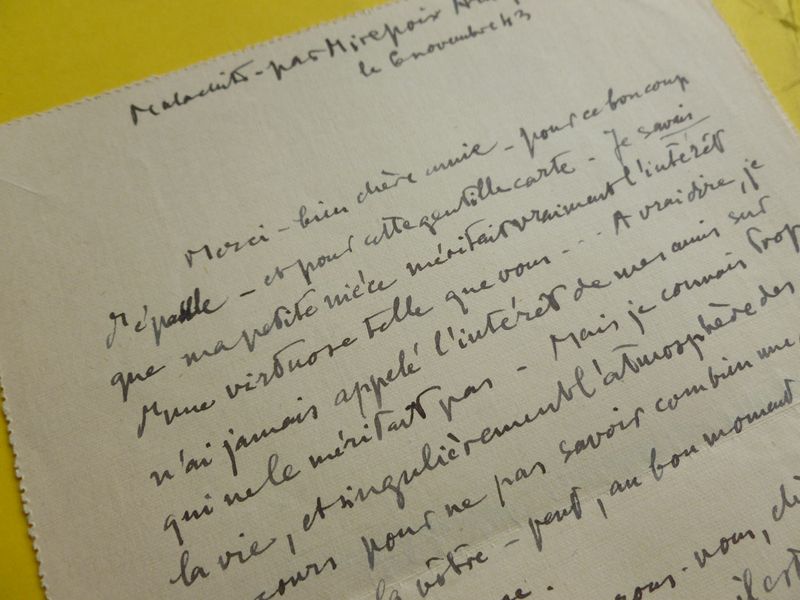 par Mirepoix
le 6 novembre 43
Merci - bien chère amie - pour ce bon coup
d'épaule - et pour cette gentille carte - Je savais
que ma petite nièce méritait vraiment l'intérêt
d'une virtuose telle que vous... A vrai dire, je
n'ai jamais appelé l'intérêt de mes amis sur
qui ne le méritait pas - Mais je connais trop
la vie, et singulièrement l'atmosphère des
cours pour ne pas savoir combien une
la vôtre - peut, au bon moment
vous,
il est